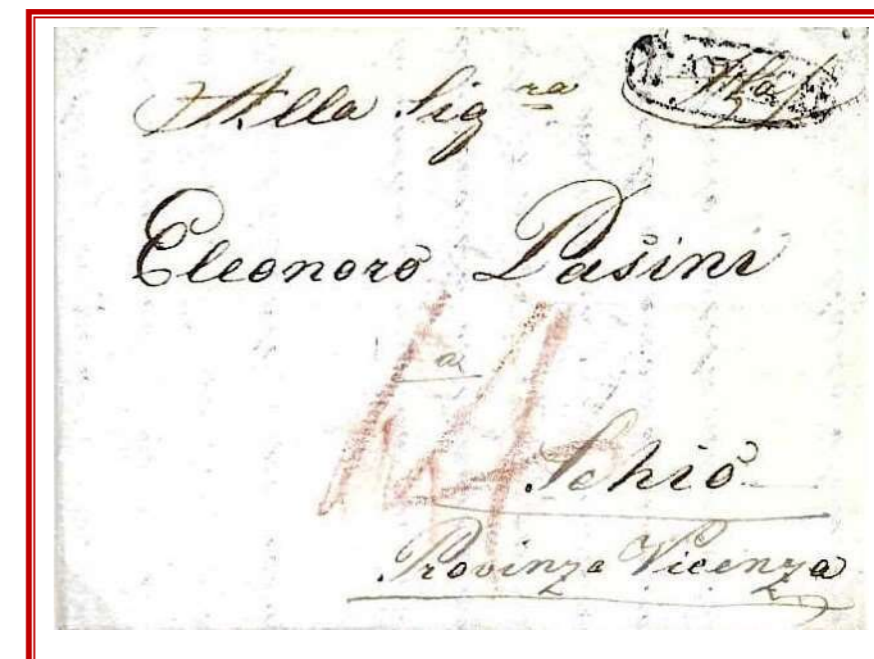 Alla Sig.ra
Eleonora Pasini
a
Schio
Provinza Vicenza